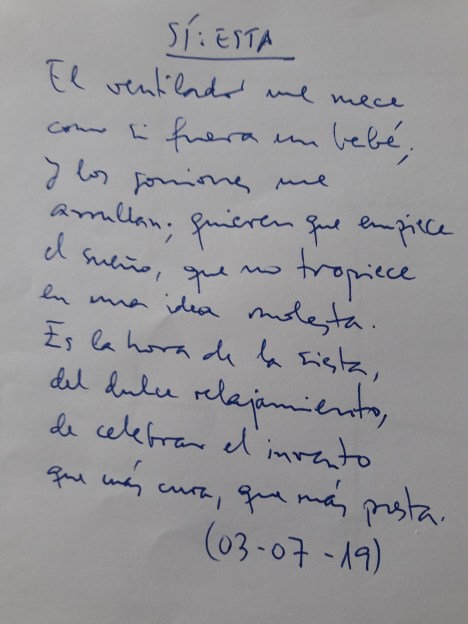 SÍ: ESTA
El ventilador me mece
como si fuera un bebé,
y los gorriones me
arrullan; quieren que empiece
el sueño, que no tropiece
en una idea molesta.
Es la hora de la siesta,
del dulce relajamiento,
de celebrar el invento
que más cura, que más presta.
(03-07-19)